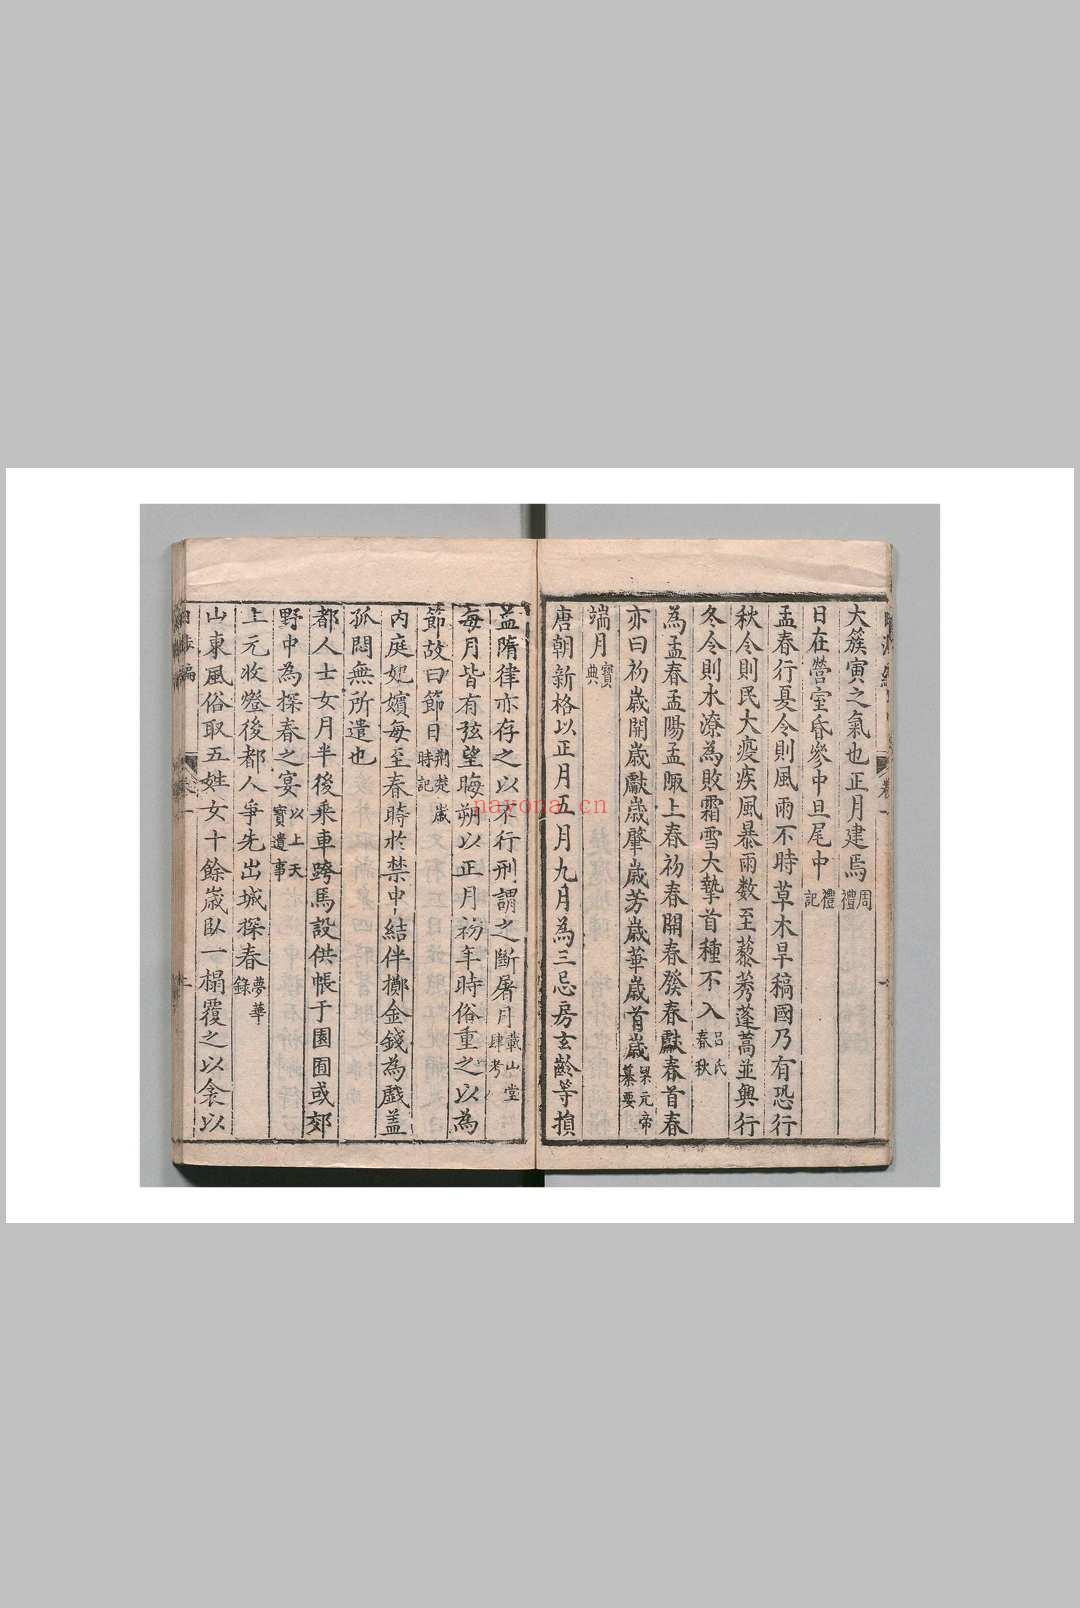 大簇寅之氣也正月建焉周禮
日在營室昏參中旦尾中禮記
孟春行夏令則風雨不時草木旱稿國乃有恐行
秋令則民大疫疾風暴雨数至藜莠蓬蒿並興行
冬令則水潦為敗霜雪大摯首種不入呂氏春秋
為孟春孟陽孟陬上春初春開春發春獻春首春
亦曰初歲開歲獻歲肇歲芳歲華歲首歲梁元帝纂要
端月寶典
唐朝新格以正月五月九月為三忌房玄齡等損
益隋律亦存之以不行刑謂之斷屠月戴山堂肆考
每月皆有弦望晦朔以正月初年時俗重之以為
節故曰節日荆楚歲時記
內庭妃嬪每至春時於禁中結伴擲金錢為戲盖
孤悶無所遣也
都人士女月半後乘車跨馬設供帳于園囿或郊
野中為探春之宴以上天寶遺事
上元收燈後都人爭先出城探春夢華錄
山東風俗取五姓女十餘歲臥一榻覆之以衾以
卷一
二
nayona.cn